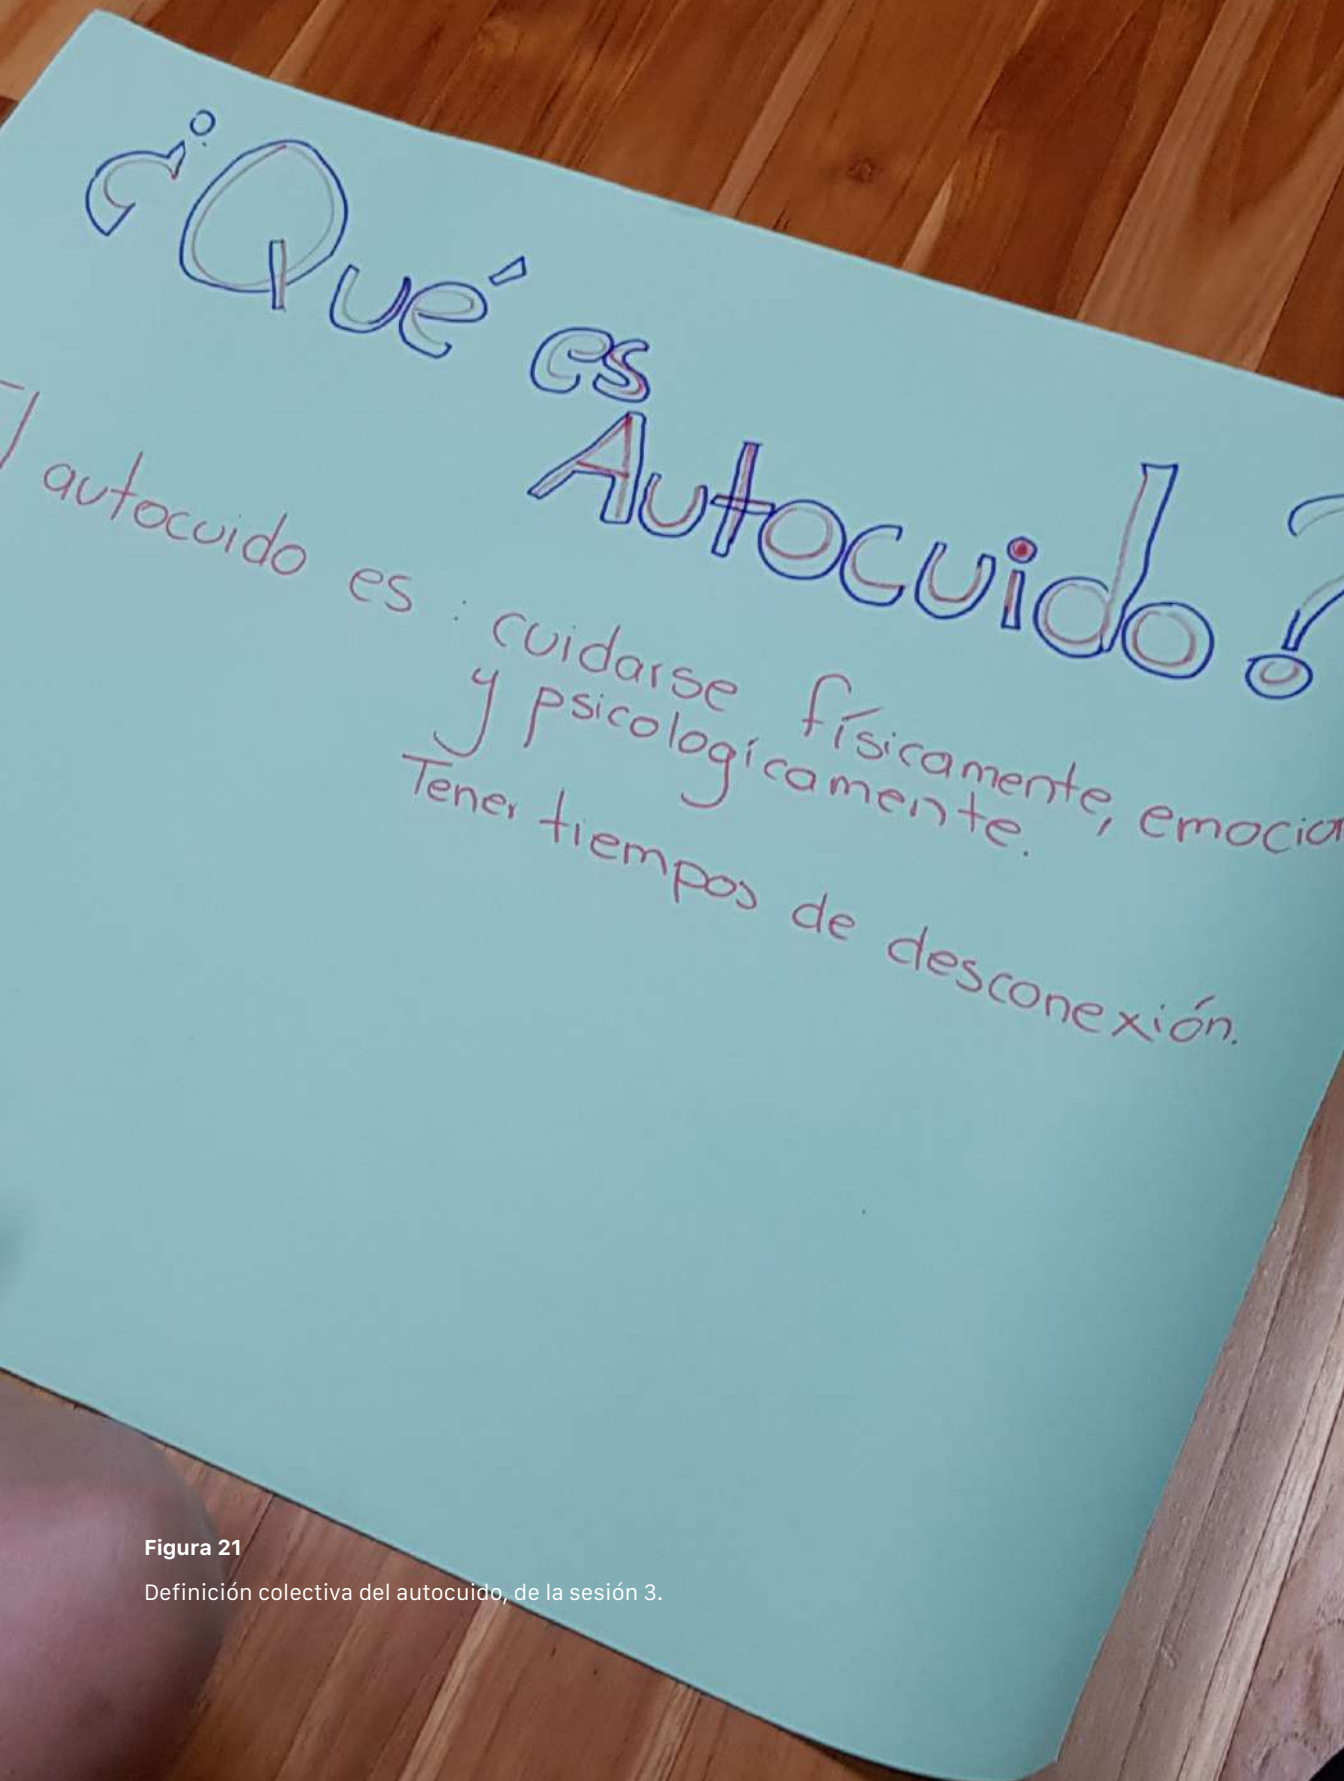 ¿Qué es
Autocuido?
El autocuido es: cuidarse físicamente, emocio
y psicologícamente.
Tener tiempos de desconexión.
Figura 21
Definición colectiva del autocuido, de la sesión 3.